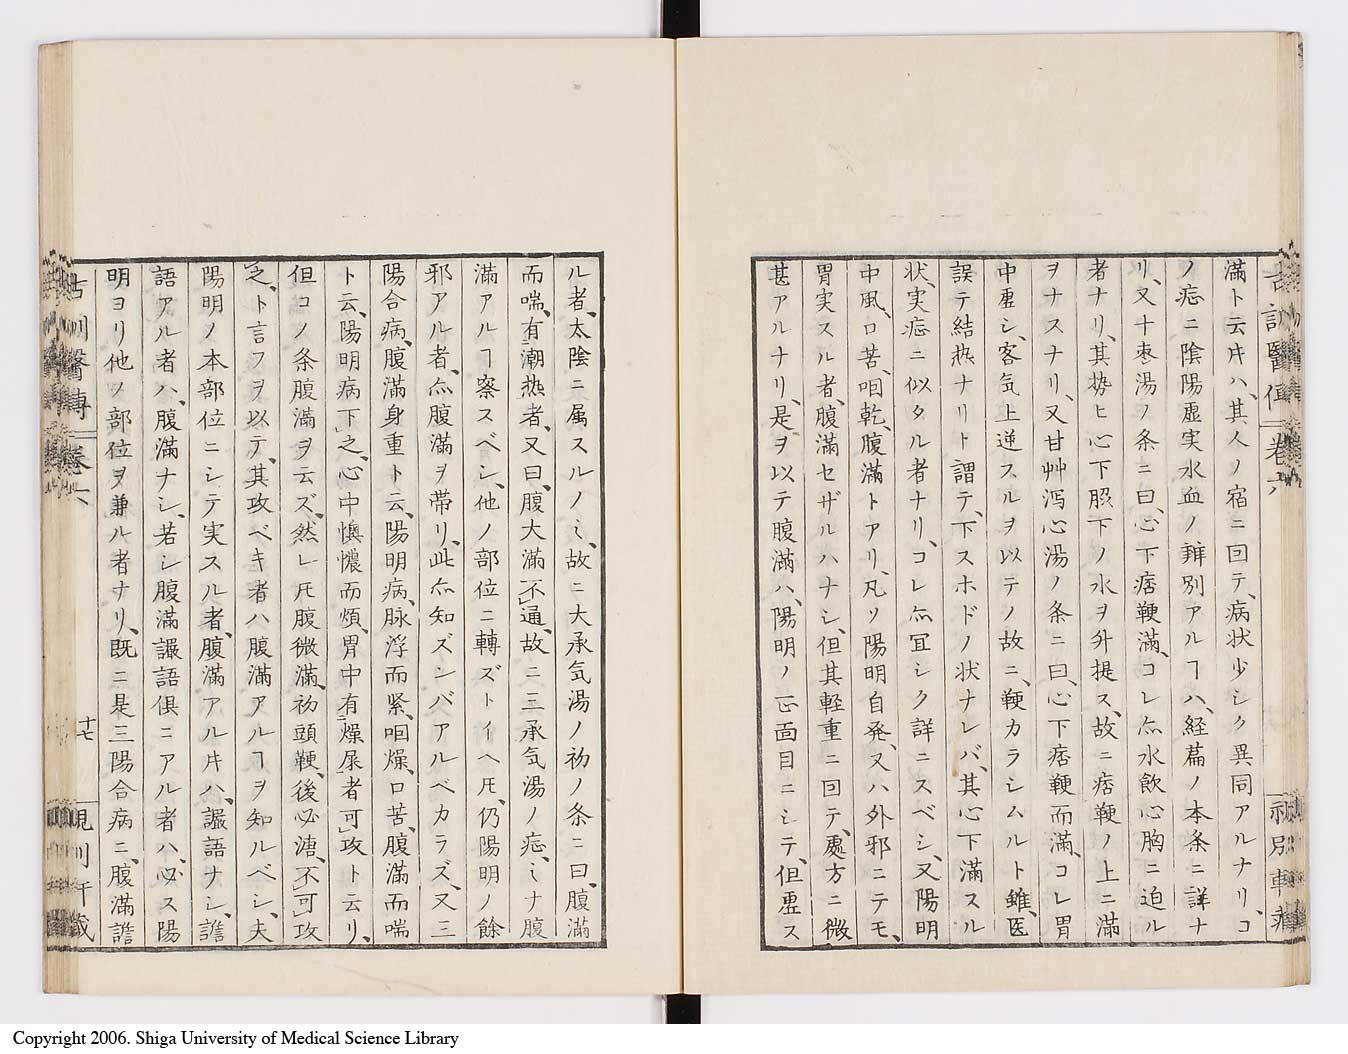 満ト云𪜈ハ、其人ノ宿ニ回テ、病状少シク異同アルナリ、コ
ノ症ニ陰陽虚実水血ノ辨別アルヿハ、経篇ノ本条ニ詳ナ
リ、又十枣湯ノ条ニ曰、心下痞鞕満、コレ亦水飲心胸ニ迫ル
者ナリ、其勢ヒ心下照下ノ水ヲ升提ス、故ニ痞鞕ノ上ニ満
ヲナスナリ、又甘艸瀉心湯ノ条ニ曰、心下痞鞕而満、コレ胃
中虚シ、客気上逆スルヲ以テノ故ニ、鞕カラシムルト雖、医
誤テ結熱ナリト謂テ、下スホドノ状ナレバ、其心下満スル
状、実症ニ似タル者ナリ、コレ亦冝シク詳ニスベシ、又陽明
中風、口苦、咽乾、腹満トアリ、凡ソ陽明自発、又ハ外邪ニテモ、
胃実スル者、腹満セザルハナシ、但其軽重ニ回テ、處方ニ微
甚アルナリ、是ヲ以テ腹満ハ、陽明ノ正面目ニシテ、但虚ス
ル者、太陰ニ属スルノミ、故ニ大承気湯ノ初ノ条ニ曰、腹満
而喘、有潮热者、又曰、腹大満不通、故ニ三承気湯ノ症、ミナ腹
満アルヿ察スベシ、他ノ部位ニ轉ズトイヘ𪜈、仍陽明ノ餘
邪アル者、亦腹満ヲ帯リ、此亦知ズンバアルベカラズ、又三
陽合病、腹満身重ト云、陽明病、脉浮而緊、咽燥、口苦、腹満而喘
ト云、陽明病下之、心中懊憹而煩、胃中有燥屎者可攻ト云リ、
但コノ条腹満ヲ云ズ、然レ𪜈腹微満、初頭鞕、後必溏、不可攻
之、ト言フヲ以テ、其攻ベキ者ハ腹満アルヿヲ知ルベシ、夫
陽明ノ本部位ニシテ実スル者、腹満アル𪜈ハ、讝語ナシ、譫
語アル者ハ、腹満ナシ、若シ腹満讝語俱ニアル者ハ、必ス陽
明ヨリ他ノ部位ヲ兼ル者ナリ、既ニ是三陽合病ニ、腹満譫
古訓醫傳 卷六
十七
Copyright 2006. Shiga University of Medical Science Library